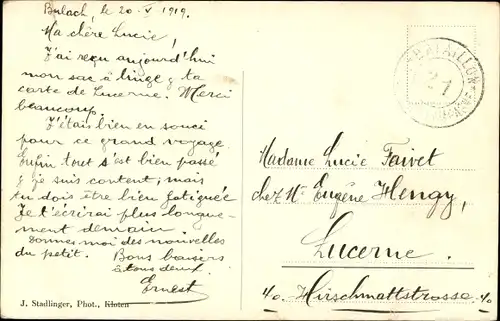 Bulach, le 20-V 1919.
Ma chère Lucie,
J'ai reçu aujourd'hui
mon sac à linge, & ta
carte de Lucerne. Merci
beaucoup.
J'étais bien en souci
pour ce grand voyage.
Enfin tout s'est bien passé
& je suis content; mais
tu dois être bien fatiguée
Je t'écrirai plus longue-
ment demain
donnes moi des nouvelles
du petit. Bons baisers
à tous deux.
Ernest
J. Stadlinger, Phot., Kloten
BATAILLON
21
Madame Lucie Faivet
chez Mr Eugène Hengy,
Lucerne.
4o Hirschmattstrasse 4o